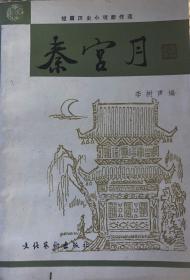 短篇历史小说新作选
秦宫月
李树声 编
文化艺术出版社